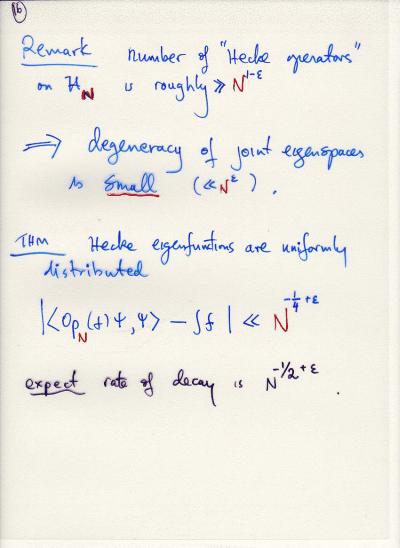 16
Remark number of "Hecke operators"
on H_N is roughly ≫ N^{1-ε}
⇒ degeneracy of joint eigenspaces
is small (≪ N^ε).
THM Hecke eigenfuntions are uniformly
distributed
|<Op_N(f)Ψ,Ψ> - ∫f| ≪ N^{-1/4+ε}
expect rate of decay is N^{-1/2+ε}.